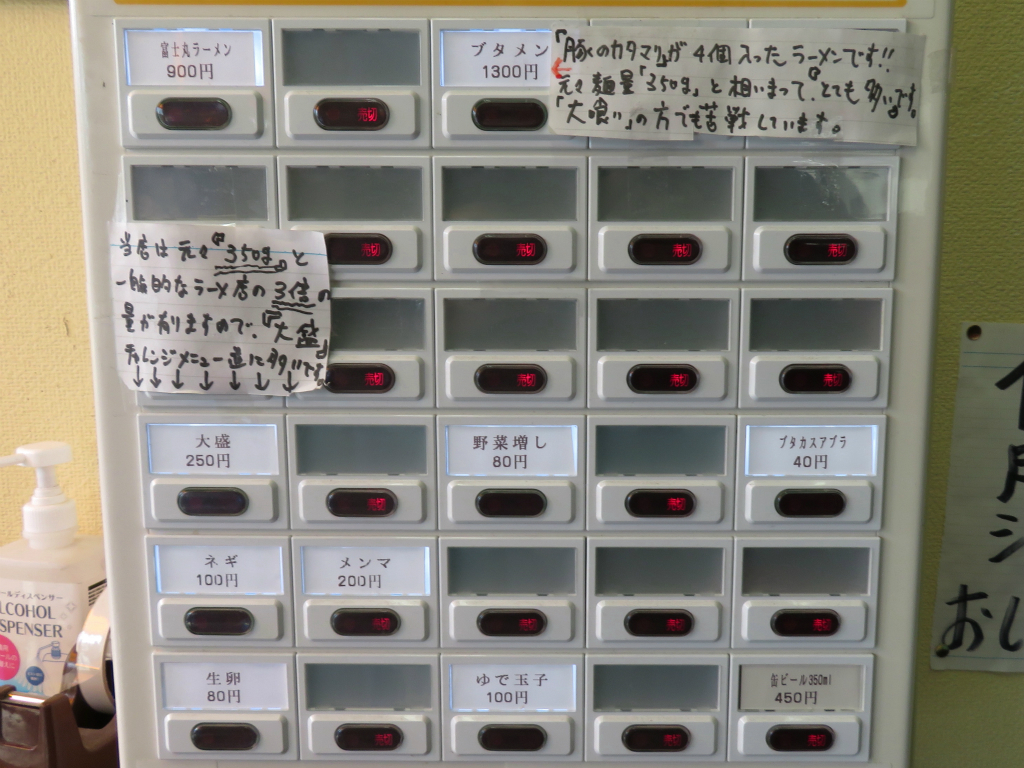 富士丸ラーメン
900円
売切
ブタメン
1300円
「豚のカタマリ」が4個入ったラーメンです!!
元々麺量「350g」と相いまって『とても多い』です。
「大喰い」の方でも苦戦しています。
売切
売切
売切
売切
当店は元々『350g』と
一般的なラーメン店の3倍の
量が有りますので、『大盛』
チャレンジメニュー並に多いです
↓↓↓↓↓↓↓
売切
売切
売切
売切
大盛
250円
売切
野菜増し
80円
売切
ブタカスアブラ
40円
ネギ
100円
メンマ
200円
売切
売切
売切
売切
生卵
80円
売切
ゆで玉子
100円
売切
缶ビール350ml
450円
売切
ールディスペンサー
LCOHOL
SPENSER
お